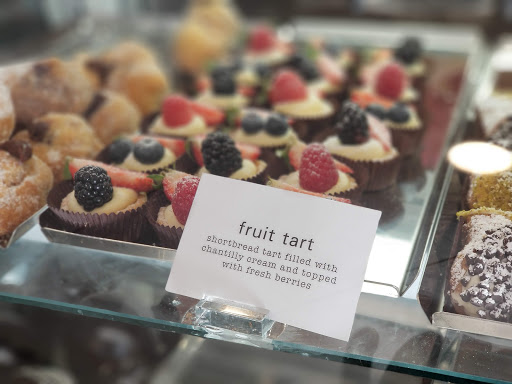 fruit tart
shortbread tart filled with
chantilly cream and topped
with fresh berries